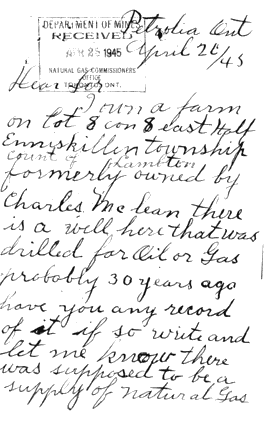 Petrolia Ont
DEPARTMENT OF MINES
RECEIVED
1945
NATURAL GAS COMMISSIONERS
OFFICE
TORONTO, ONT.
April 26/45
Dear Sir
I own a farm
on lot 8 con 8 east Half
Enniskillin township
count of Lambton
formerly owned by
Charles, Mc lean there
is a well here that was
drilled for Oil or Gas
probably 30 years ago
have you any record
of it if so write and
let me know there
was supposed to be a
supply of natural Gas